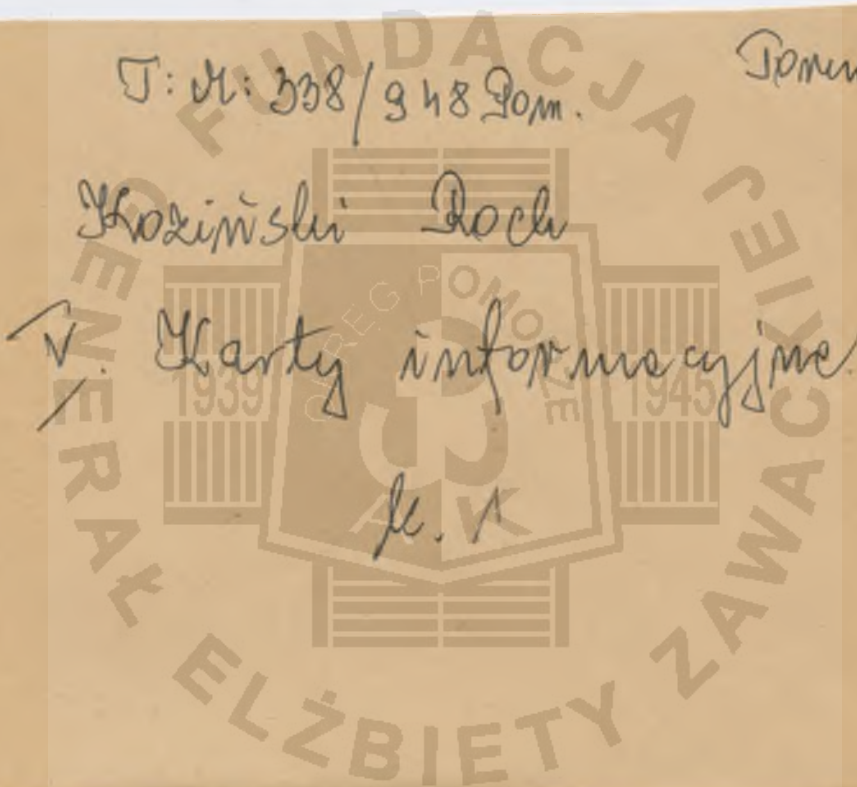 T: M: 338/948 Pom.
Koziński Roch
V. Karty informacyjne
k. 1
FUNDACJA GENERAŁ ELŻBIETY ZAWACKIEJ
OKRĘG POMORZE
1939 1945
AK